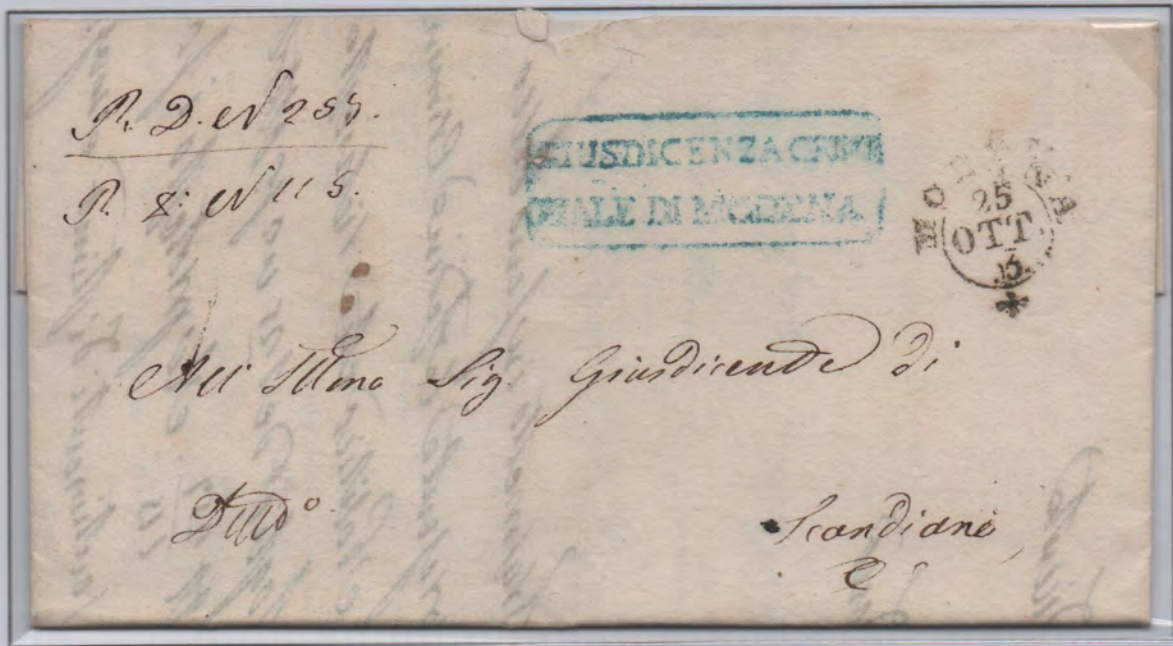 P. D. N 255.
P. N 115.
GIUSDICENZA CRIMI
NALE DI MODENA
MODENA
25
OTT.
All' Illmo Sig. Giusdicende di
Scandiano